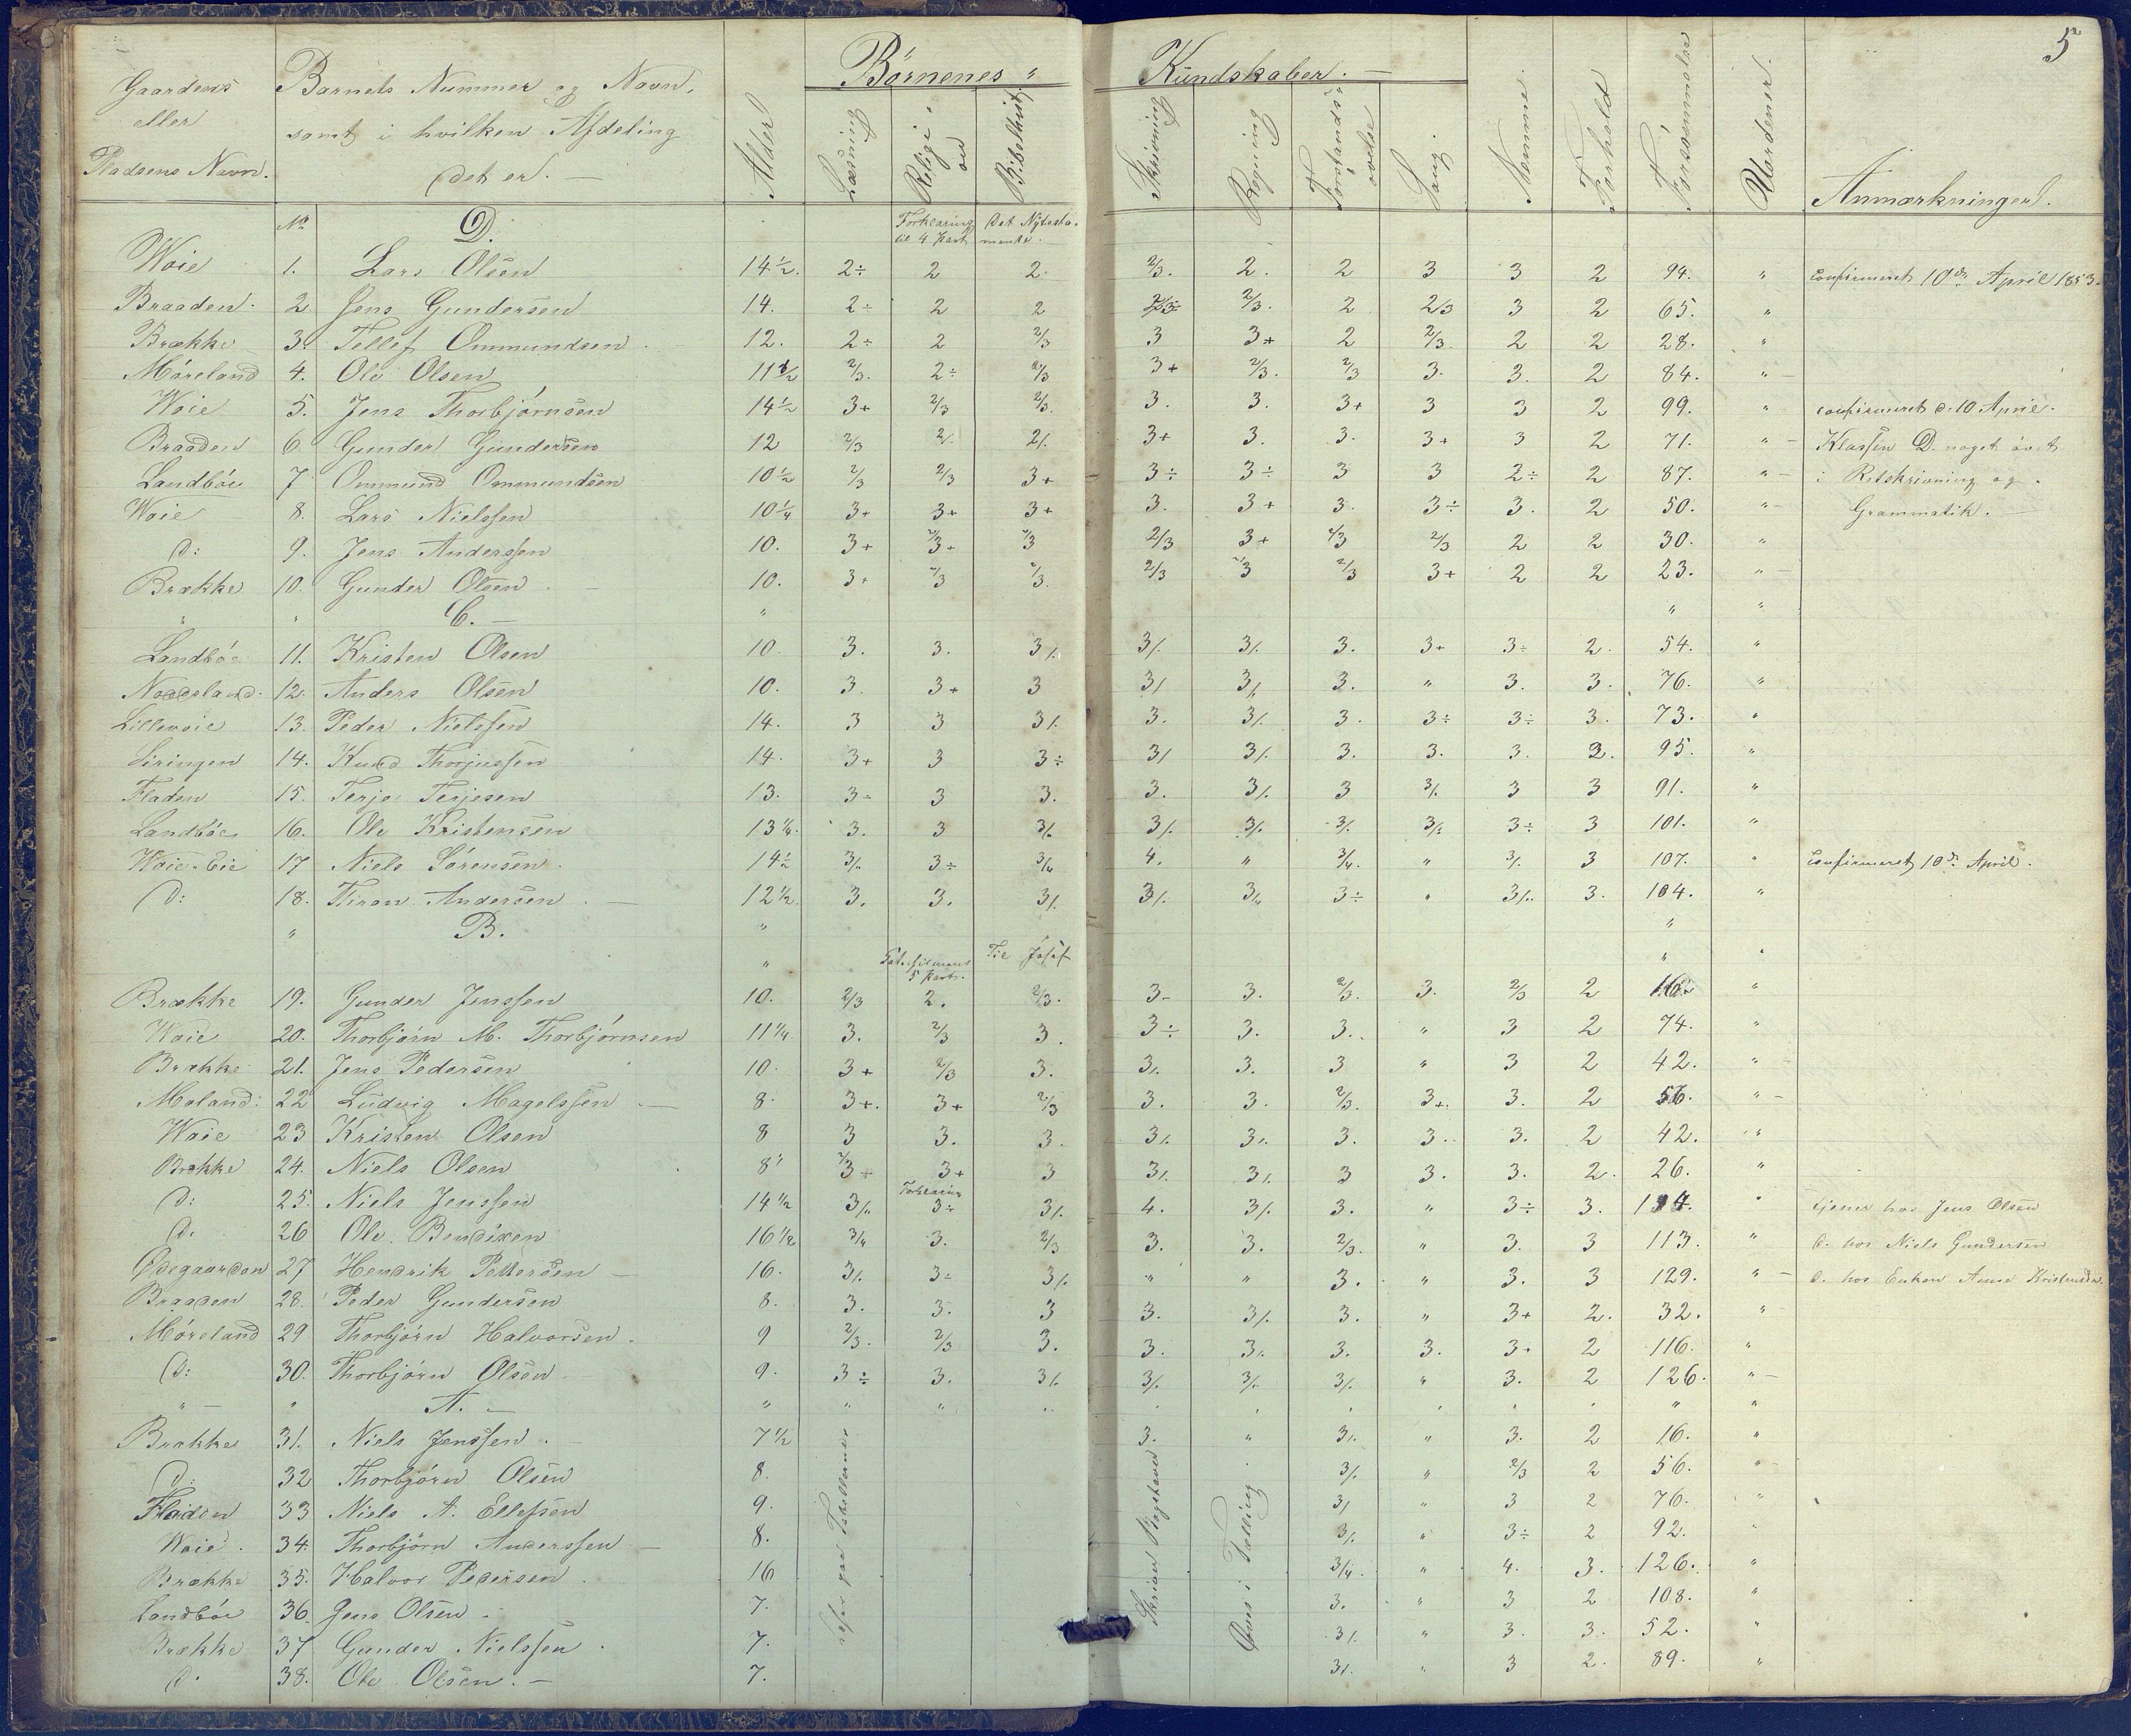 5
Gaardens eller Pladsens Navn.
Barnets Nummer og Navn, samt i hvilken Afdeling det er. —
Alder
Börnenes " Kundskaber. —
Læsning
Religion
Bibelhist.
Skrivning
Regning
Forstandsövelse
Sang.
Nemme.
Forhold
Forsömmelse
Anmærkninger.
No. D. Forklaring til 4 Part Det Nytestamente.
Woie 1. Lars Olsen 14½. 2÷ 2 2 2/3. 2. 2 3 3 2 94. " confirmeret 10de April 1853.
Braaden 2. Jens Gundersen 14. 2÷ 2 2 2/3. 2 2/3 3 2 65. "
Brække 3. Tellef Ommundsen 12. 2÷ 2 2/3 3 3+ 2 2/3. 2 2 28. "
Möreland 4. Ole Olsen 11½ 2/3. 2÷ 2/3 3+ 2/3. 2/3 3. 3. 2 84. "
Woie 5. Jens Thorbjörnsen 14½ 3+ 2/3 2/3. 3. 3. 3+ 3 3 2 99. " confirmeret d. 10 April.
Braaden 6. Gunder Gundersen 12 2/3 2/. 2/. 3+ 3. 3. 3+ 3 2 71. " Klassen D. noget övet
Landböe 7. Ommund Ommundsen 10½ 2/3 2/3 3+ 3÷ 3÷ 3 3 2÷ 2 87. " i Retskrivning og
Woie 8. Lars Nielssen 10¼ 3+ 3+ 3+ 3. 3+ 3. 3÷ 3. 2 50. " Grammatik.
D: 9. Jens Anderssen 10. 3+ 2/3+ 2/3 2/3 3+ 2/3 2/3 2 2 30. "
Brække 10. Gunder Olsen 10. 3+ 2/3 2/3. 2/3 2/3 2/3 3+ 2 2 23. "
" " C. — " " "
Landböe 11. Kristen Olsen 10. 3. 3. 3/. 3/. 3/. 3. 3+ 3÷ 2. 54. "
12. Anders Olsen 10. 3. 3+ 3 3/ 3/. 3. " 3. 3. 76. "
Lillevoie 13. Peder Nielssen 14. 3 3 3/. 3. 3/. 3. 3÷ 3÷ 3. 73. "
Siringen 14. Knud Thorjussen 14. 3+ 3 3÷ 3/ 3/. 3. 3. 3. 2. 95. "
Fladen 15. Terje Terjesen 13. 3÷ 3 3. 3. 3/. 3 3/. 3 3 91. "
Landböe 16. Ole Kristensen 13¼. 3. 3 3/. 3/. 3/. 3/. 3/. 3÷ 3 101. "
Woie-Eie 17 Niels Sörensen 14½ 3/. 3÷ 3/4 4. " 3/4. " 3/. 3 107. " confirmeret 10de April.
D: 18. Andersen 12½. 3. 3. 3/. 3/. 3/. 3÷ " 3/. 3. 104. "
" B. " "
" 5 Part. Til Josef " "
Brække 19. Gunder Jenssen 10. 2/3 2. 2/3. 3- 3. 2/3. 3. 2/3 2 16. "
Woie 20. Thorbjörn M. Thorbjörnsen 11¼ 3. 2/3 3. 3÷ 3. 3. " 3 2 74. "
Brække 21. Jens Pedersen 10. 3+ 2/3 3. 3/. 3. 3 " 3 2 42. "
Moland: 22 Ludvig Magelssen 8. 3+. 3+ 2/3 3. 3. 2/3. 3+. 3. 2 56. "
Woie 23 Kristen Olsen 8 3 3. 3. 3/. 3/. 3. 3. 3. 2 42. "
Brække 24. Niels Olsen 8 2/3+ 3+ 3 3/. 3/. 3 3. 3. 2. 26. "
Forklaring
D: 25. Niels Jenssen 14½ 3/. 3÷ 3/. 4. 3/. 3. " 3÷ 3. 134. " tjener hos Jens Olsen
D. 26 Ole Bendixen 16½ 3/4 3. 2/3 3. 3. 2/3. " 3. 3 113. " d. hos Niels Gundersen
Ödegaarden 27 Hendrik Pettersen 16. 3/. 3÷ 3/. " " 3. " 3. 3 129. " d. hos Enken Anne Kristensdr.
Braaden 28. Peder Gundersen 8. 3. 3. 3 3. 3/. 3. " 3+ 2. 32. "
Möreland 29 Thorbjörn Halvorsen 9 2/3. 2/3 3. 3. 3/. 3. 3. 3+ 2 116. "
D: 30. Thorbjörn Olsen 9. 3÷ 3. 3/. 3/. 3/. 3/. " 3. 2 126. "
" — " A. — " " " " " "
Brække 31. Niels Jenssen 7½ 3. " 3/. " 3. 2 16. "
D: 32 Thorbjörn Olsen 8. 3/. " 2/3 2 56. "
Fladen 33 Niels A. Ellefsen 9. 3/ " 3 2 76. "
Woie. 34. Thorbjörn Anderssen 8. 3/. " 3÷ 2 92. "
Brække 35. Halvor Pedersen 16 3/4. " 4. 3. 126. "
Landböe 36. Jens Olsen 7. 3. " 3 2 108. "
Brække 37 Gunder Nielssen 7. 3/. " 3. 3. 52. "
D. 38. Ole Olsen. — 7. 3/. " 3 2. 89. "
læser paa Tabellerne
Skriver Bogstaver
Öves i Tælling